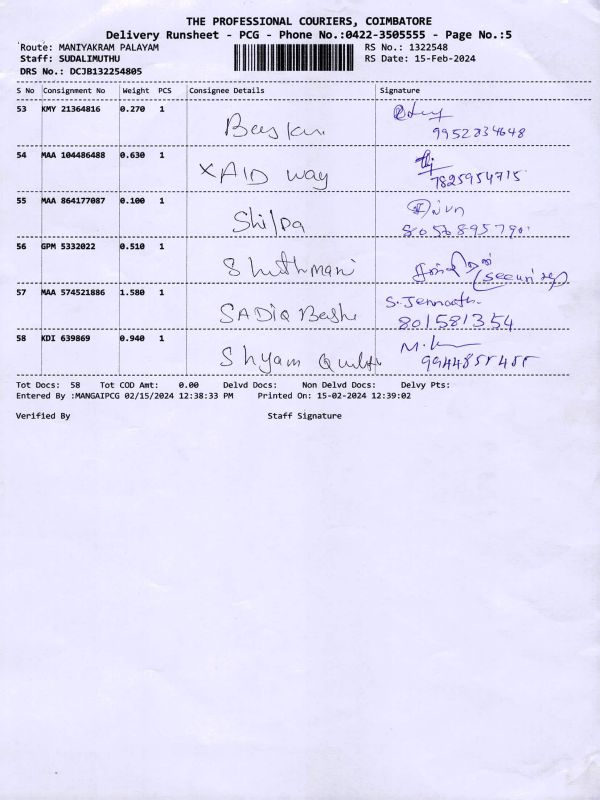 THE PROFESSIONAL COURIERS, COIMBATORE
Delivery Runsheet - PCG - Phone No.:0422-3505555 - Page No.:5
Route: MANIYAKRAM PALAYAM RS No.: 1322548
Staff: SUDALIMUTHU RS Date: 15-Feb-2024
DRS No.: DCJB132254805
S No Consignment No Weight PCS Consignee Details Signature
53 KMY 21364816 0.270 1
9952834648
54 MAA 104486488 0.630 1
XAID way
7825954715
55 MAA 864177087 0.100 1
Shilpa
8056895790
56 GPM 5332022 0.510 1
Shuthmani
(Security)
57 MAA 574521886 1.580 1 S. Jennath
SADIQ Bashe
801581354
58 KDI 639869 0.940 1
Shyam
9944855455
Tot Docs: 58 Tot COD Amt: 0.00 Delvd Docs: Non Delvd Docs: Delvy Pts:
Entered By :MANGAIPCG 02/15/2024 12:38:33 PM Printed On: 15-02-2024 12:39:02
Verified By Staff Signature